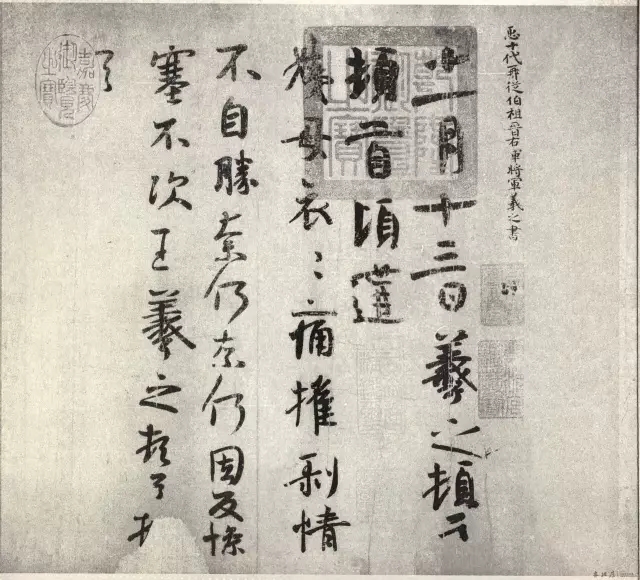 臣十代再從伯祖晉右軍將軍羲之書
十一月十三日羲之頓首
頓首頃遘
姨母哀哀痛摧剝情
不自勝奈何奈何因反慘
塞不次王羲之頓首頓
首
乾隆御覽之寶
嘉慶御覽之寶